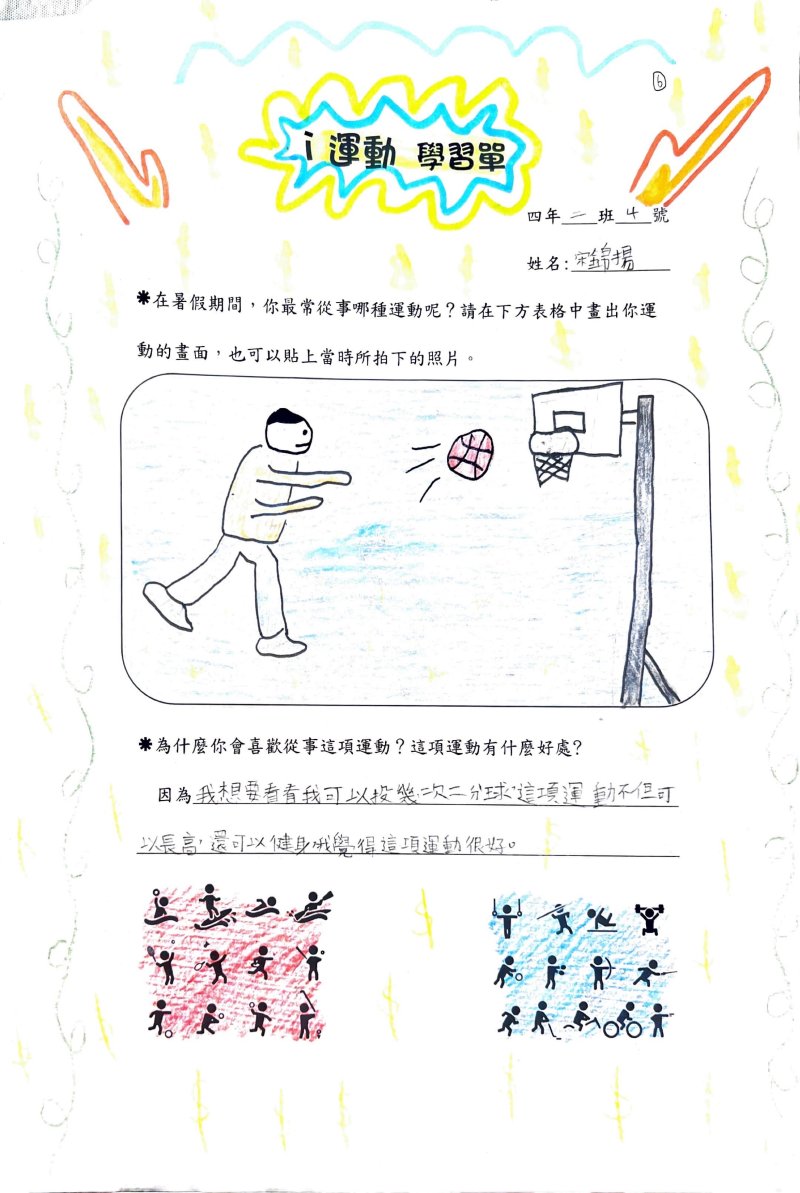 6
i 運動 學習單
四年二班4號
姓名:宋錦揚
✱在暑假期間，你最常從事哪種運動呢？請在下方表格中畫出你運
動的畫面，也可以貼上當時所拍下的照片。
✱為什麼你會喜歡從事這項運動？這項運動有什麼好處?
因為我想要看看我可以投幾次二分球,這項運動不但可
以長高,還可以健身,我覺得這項運動很好。